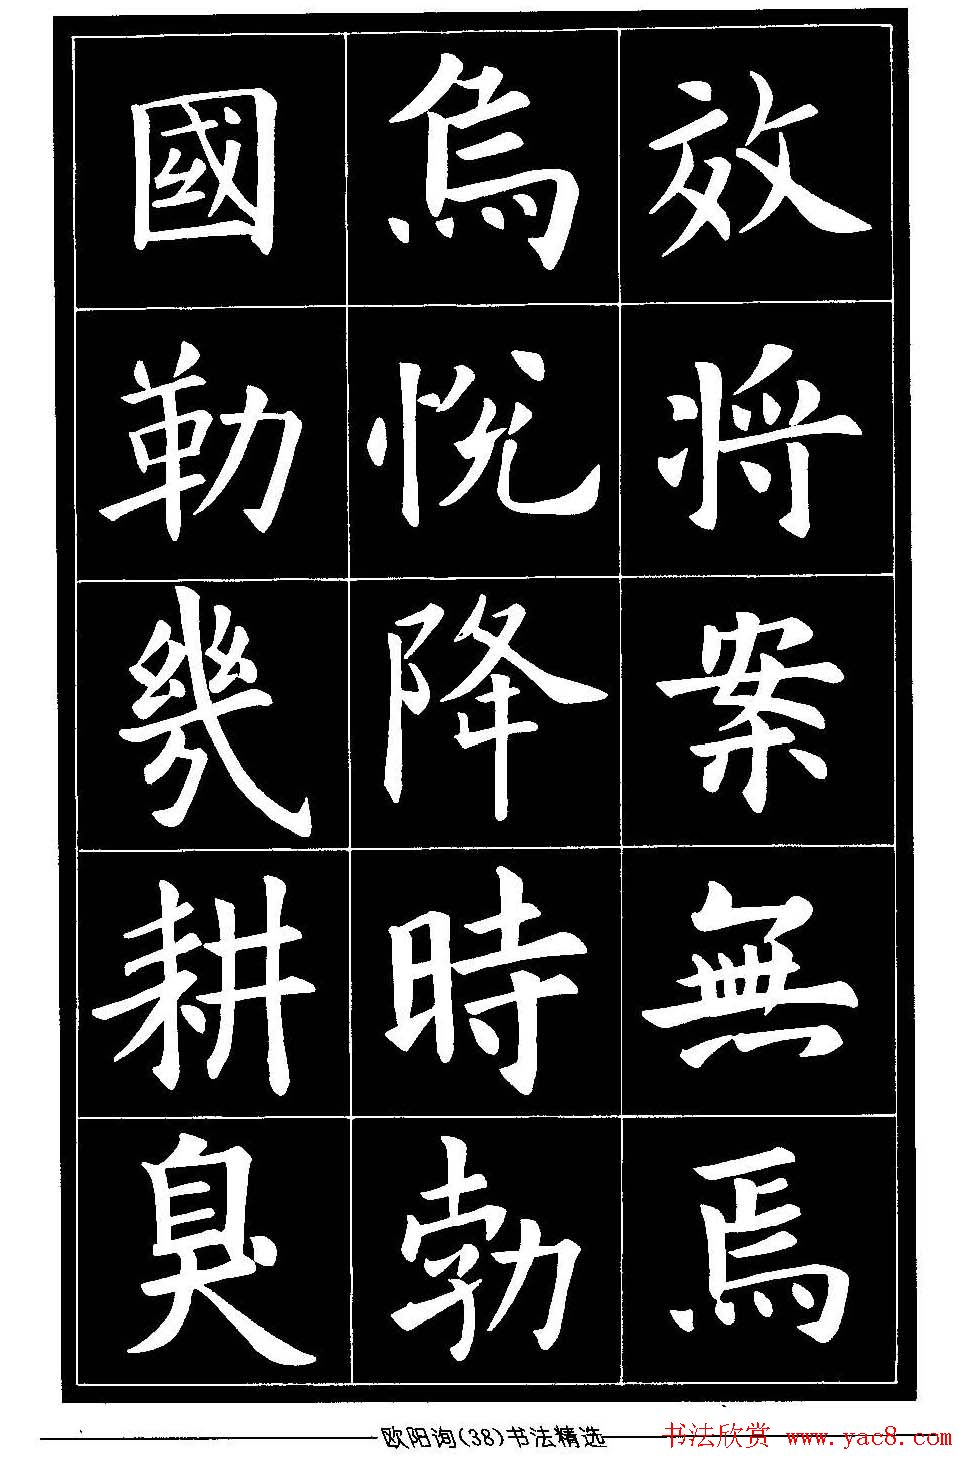 效将案無焉
為悦降時勃
國勒幾耕臭
欧阳询(38)书法精选
书法欣赏 www.yac8.com